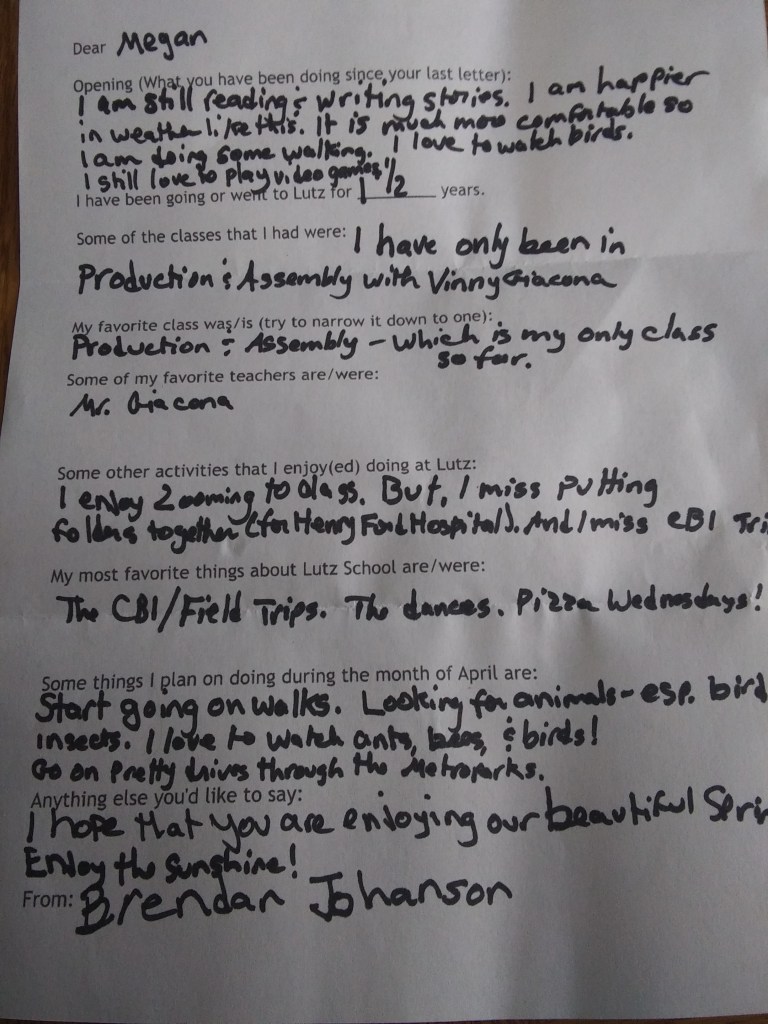 Dear Megan
Opening (What you have been doing since your last letter):
I am still reading & writing stories. I am happier
in weather like this. It is much more comfortable so
I am doing some walking. I love to watch birds.
I still love to play video games.
I have been going or went to Lutz for 1 1/2 years.
Some of the classes that I had were: I have only been in
Production & Assembly with Vinny Giacona
My favorite class was/is (try to narrow it down to one):
Production & Assembly - which is my only class
so far.
Some of my favorite teachers are/were:
Mr. Giacona
Some other activities that I enjoy(ed) doing at Lutz:
I enjoy Zooming to class. But, I miss putting
folders together (for Henry Ford Hospital). And I miss CBI Tri
My most favorite things about Lutz School are/were:
The CBI/Field Trips. The dances. Pizza Wednesdays!
Some things I plan on doing during the month of April are:
Start going on walks. Looking for animals - esp. bird
insects. I love to watch ants, bees, & birds!
Go on pretty drives through the Metroparks.
Anything else you'd like to say:
I hope that you are enjoying our beautiful Sprin
Enjoy the sunshine!
From: Brendan Johanson